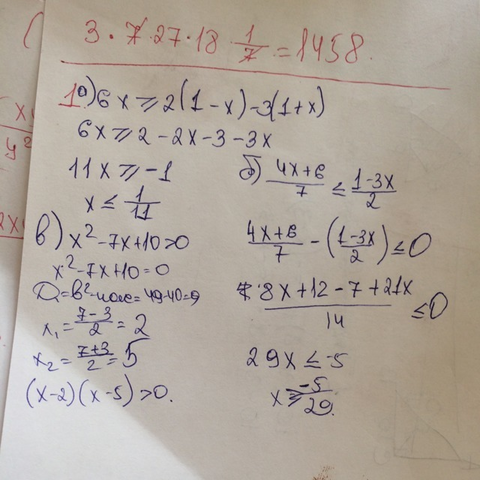 3 · 7 · 27 · 18 1/7 = 1458.
1. а) 6x ≥ 2(1 - x) - 3(1 + x)
6x ≥ 2 - 2x - 3 - 3x
11x ≥ -1
x ≤ 1/11
б) (4x+6)/7 ≤ (1-3x)/2
(4x+6)/7 - ((1-3x)/2) ≤ 0
8x + 12 - 7 + 21x / 14 ≤ 0
29x ≤ -5
x ≥ -5/29.
в) x² - 7x + 10 > 0
x² - 7x + 10 = 0
D = b² - 4ac = 49 - 40 = 9
x₁ = (7-3)/2 = 2
x₂ = (7+3)/2 = 5
(x-2)(x-5) > 0.